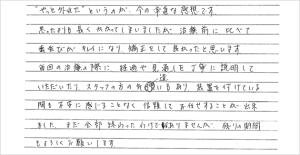 "やっと外せた"というのが、今の率直な感想です。
思ったよりも長くかかってしまいましたが治療前に比べて
歯並びがキレイになり矯正をして良かったと思います
毎回の治療の際に経過や見通しを丁寧に説明して
いただいたり、スタッフの方の気遣いもあり、装置を付けている
間も不安に感じることなく信頼してお任せすることが出来
ました。まだ全部終わったわけではありませんが、残りの期間
もよろしくお願いします